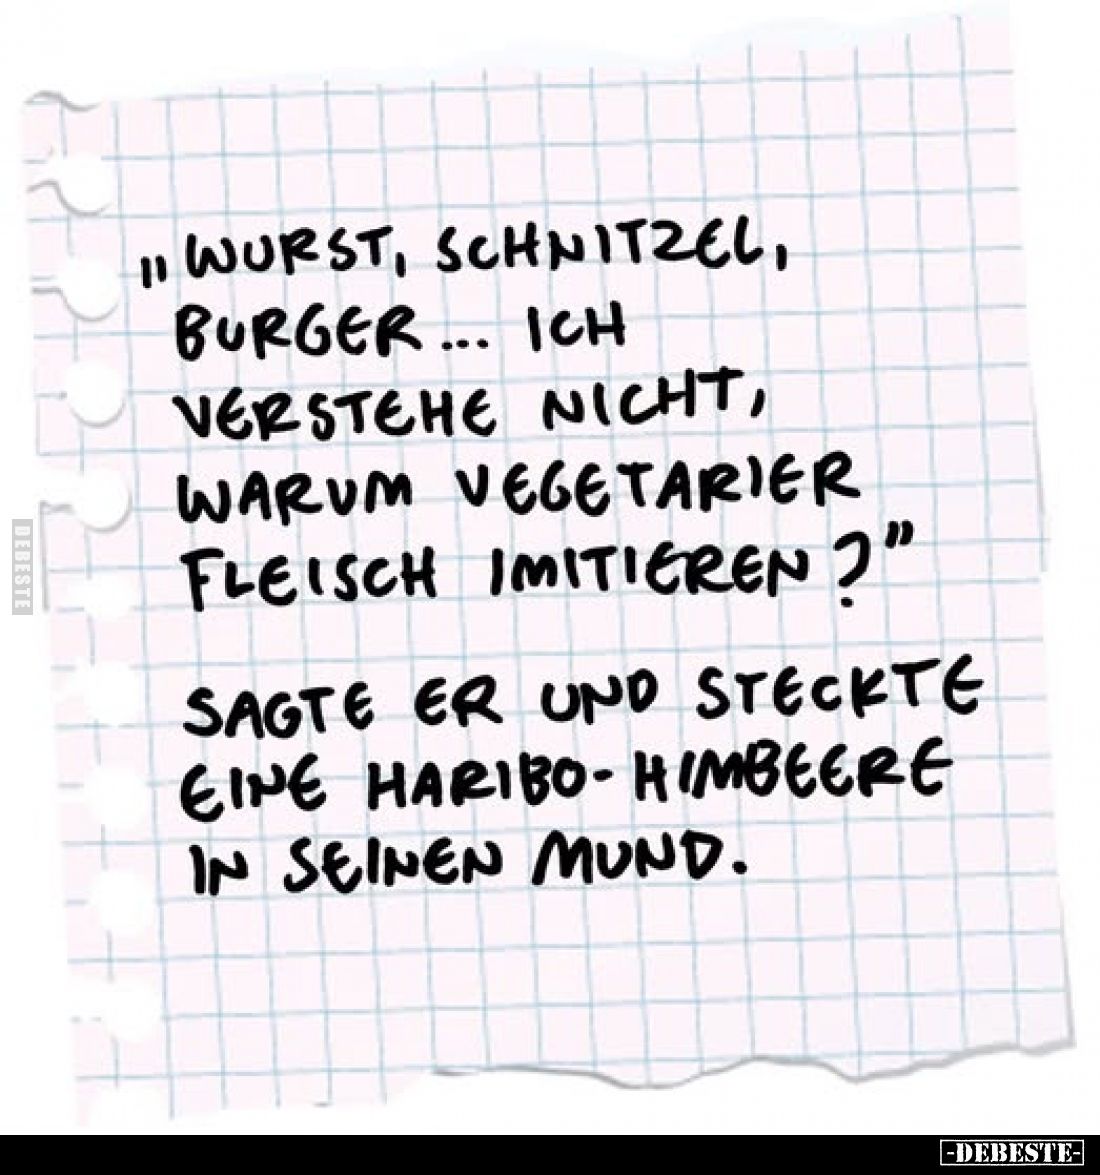 „WURST, SCHNITZEL,
BURGER... ICH
VERSTEHE NICHT,
WARUM VEGETARIER
FLEISCH IMITIEREN?”
SAGTE ER UND STECKTE
EINE HARIBO-HIMBEERE
IN SEINEN MUND.
DEBESTE
-DEBESTE-